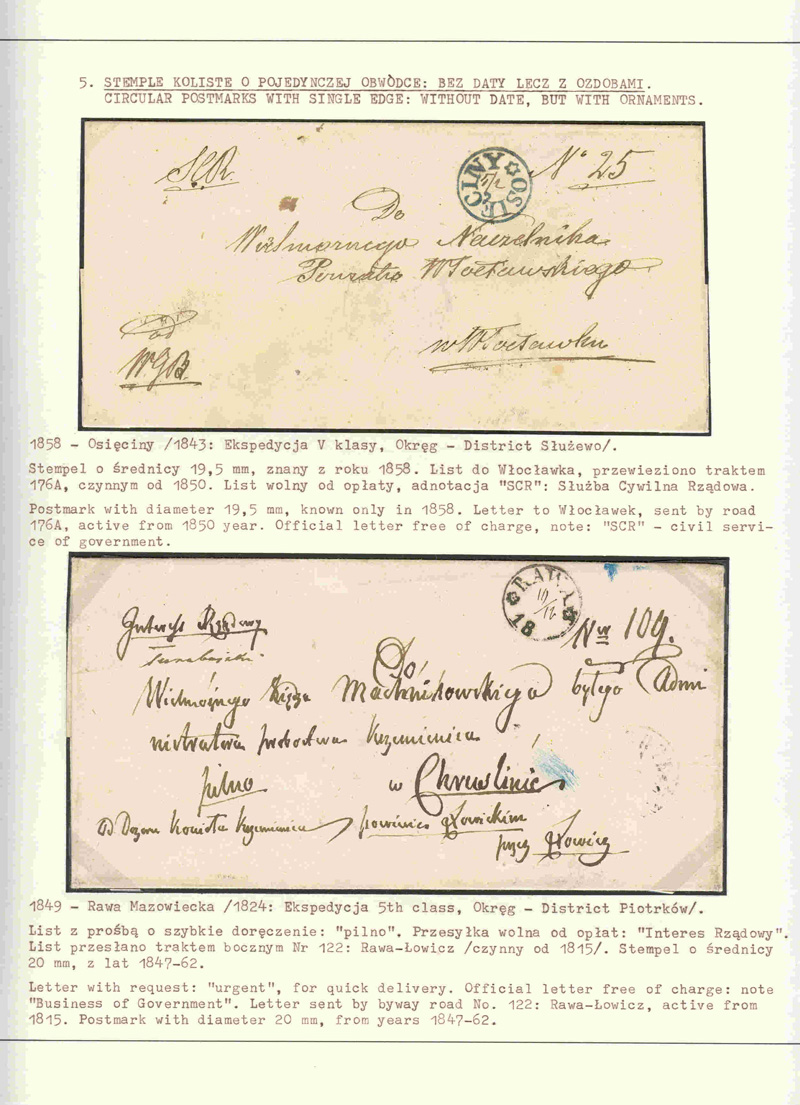 5. STEMPLE KOLISTE O POJEDYNCZEJ OBWÒDCE: BEZ DATY LECZ Z OZDOBAMI.
CIRCULAR POSTMARKS WITH SINGLE EDGE: WITHOUT DATE, BUT WITH ORNAMENTS.
SCR
OSIĘCINY
No 25
Do
Wielmożnego Naczelnika
Powiatu Włocławskiego
od
w Włocławku
1858 - Osięciny /1843: Ekspedycja V klasy, Okręg - District Służewo/.
Stempel o średnicy 19,5 mm, znany z roku 1858. List do Włocławka, przewieziono traktem
176A, czynnym od 1850. List wolny od opłaty, adnotacja "SCR": Służba Cywilna Rządowa.
Postmark with diameter 19,5 mm, known only in 1858. Letter to Włocławek, sent by road
176A, active from 1850 year. Official letter free of charge, note: "SCR" - civil servi-
ce of government.
RAWA
19/12
18
Interes Rządowy
Nr 109.
Do
Wielmożnego Księdza Machnikowskiego byłego Admi
nistratora probostwa Krzemienica
pilno
w Chruslinie
Od Dozoru Kościoła Krzemienica powiecie Łowickim
przez Łowicz
1849 - Rawa Mazowiecka /1824: Ekspedycja 5th class, Okręg - District Piotrków/.
List z prośbą o szybkie doręczenie: "pilno". Przesyłka wolna od opłat: "Interes Rządowy".
List przesłano traktem bocznym Nr 122: Rawa-Łowicz /czynny od 1815/. Stempel o średnicy
20 mm, z lat 1847-62.
Letter with request: "urgent", for quick delivery. Official letter free of charge: note
"Business of Government". Letter sent by byway road No. 122: Rawa-Lowicz, active from
1815. Postmark with diameter 20 mm, from years 1847-62.